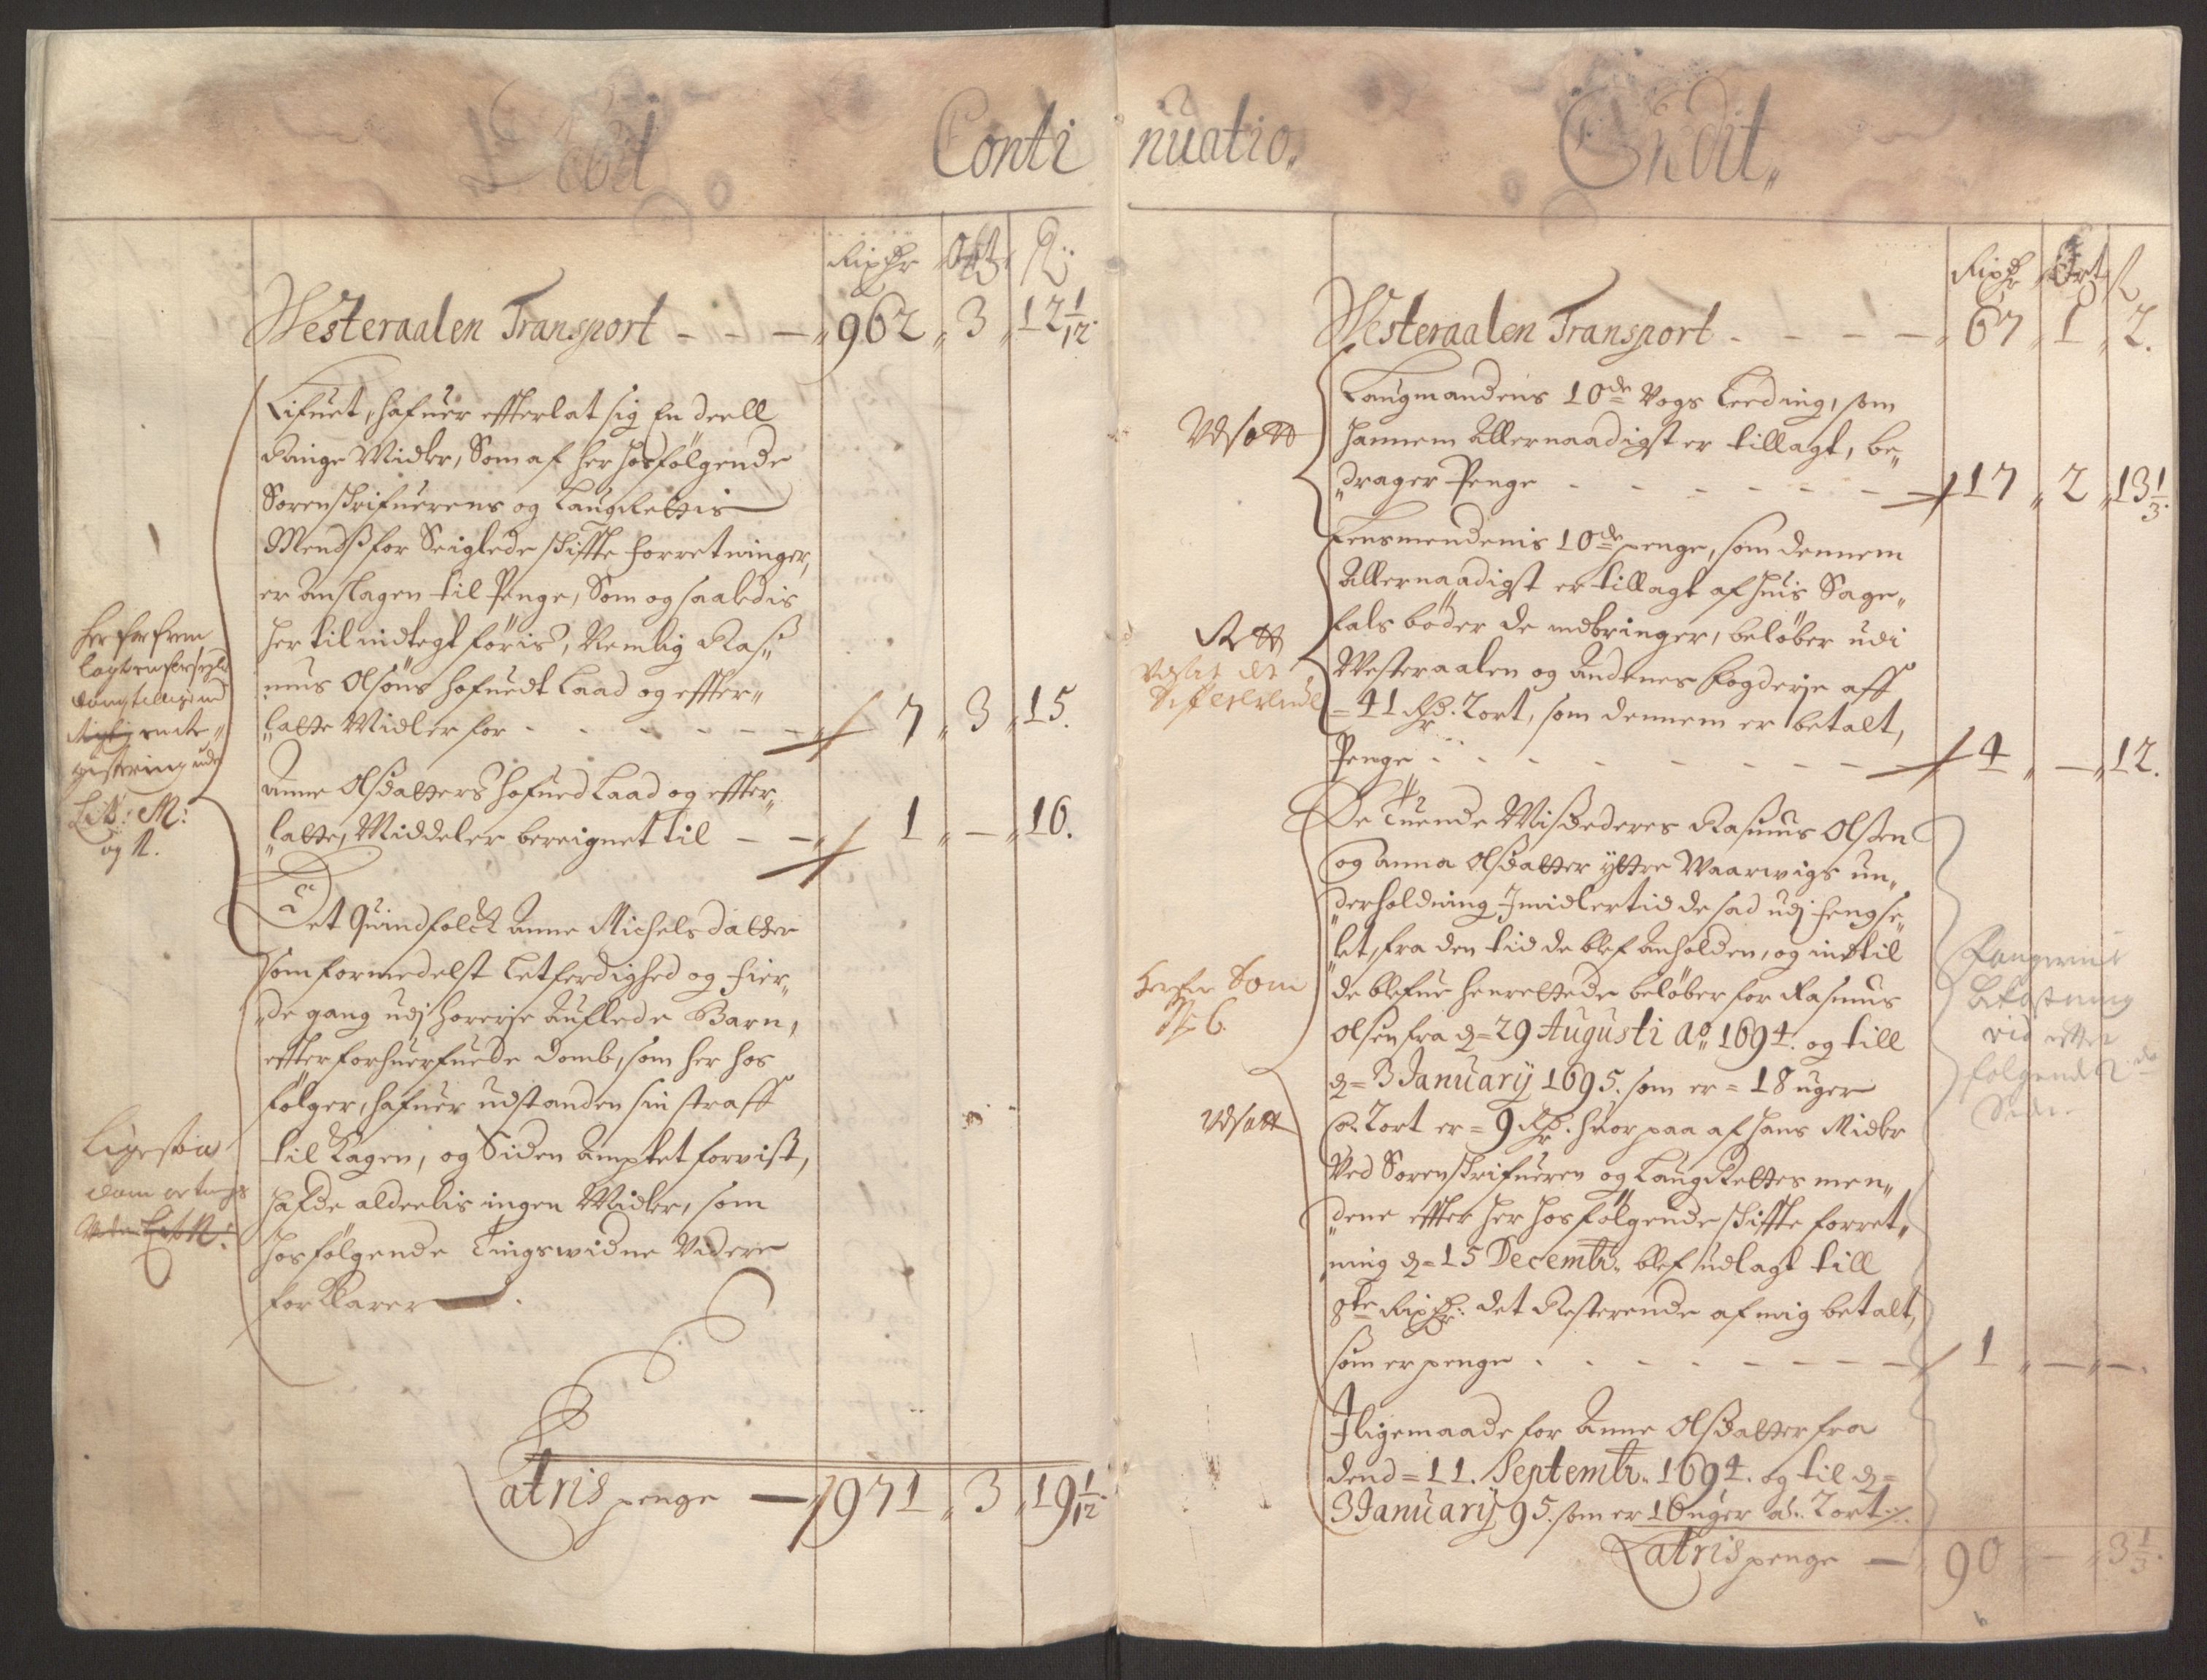 Debit Continuatio.
Rixdr Ort ß
Westeraalen Transport - - - 962 „ 3 „ 12 1/12
Lifuet, hafuer effterlat sig En deell
Ringe Midler, Som af her hosfølgende
Sorenskrifuerens og Laugrettis
Mends forseiglede skiffte forretninger,
er anslagen til Penge, Som og saaledis
her til indtegt føris, Nemlig Ras-
mus Olsøns hofuedt Laad og effter-
latte Midler for - - - - - - 7 „ 3 „ 15.
Anne Olsdatters hofued Laad og effter-
latte, Middeler bereignet til - - 1 „ - „ 16.
Det Quindfolck Anne Michelsdatter
som formedelst Letferdighed og fier-
de gang udj horerje Auflede Barn,
effter forhuerfuede domb, som her hos
følger, hafuer udstanden sin straff
til Kagen, og Siden Amptet forvist,
hafde aldeelis ingen Midler, som
hosfølgende Tingswidne Videre
forklarer
Latris penge - 971 „ 3 „ 19 1/12
her for frem
Litt: M:
og N.
Ligesaa
Credit.
Rixdr Ort ß
Westeraalen Transport - - - - 67 „ 1 „ 2.
Laugmandens 10de Vogs Leeding, som
hannem Allernaadigst er tillagt, be-
drager Penge - - - - - - 17 „ 2 „ 13 1/3.
Lensmendenis 10de penge, som dennem
Allernaadigst er tillagt af huis Sage-
fals bøder de indbringer, beløber udi
Westeraalen og Andenes fogderje aff
= 41 Rdr. 2 ort, som dennem er betalt,
Penge - - - - - - - - 4 „ - „ 12.
De Tuende Misdederes Rasmus Olsen
og Anna Olsdatter yttre Waarwigs un-
derholdning Imidlertid de sad udj fengse-
let, fra den tid de blef anholden, og indtil
de blefue henrettede beløber for Rasmus
Olsen fra d= 29 Augusti Ao 1694. og till
d= 3 January 1695. som er = 18 uger
a 2 ort er = 9 Rdr. huor paa af hans Midler
Ved Sorenskrifueren og Laugrettes men-
dene effter her hosfølgende skiffte forret-
ning d= 15 Decembr. blef udlagt till
8te Rixdr: det Resterende af mig betalt,
som er penge - - - - - - - - 1 „ - „ -.
Iligemaade for Anne Olsdatter fra
dend = 11. Septembr. 1694. og til d=
3 January 95. som er 16 uger a. 2 ort
Latris penge - 90 „ - „ 3 1/3.
Udsatt
Rett
Herfor Dom
No 6.
Udsatt
Fangernis
Bekostning
vid efter
følgende 2 de
Side